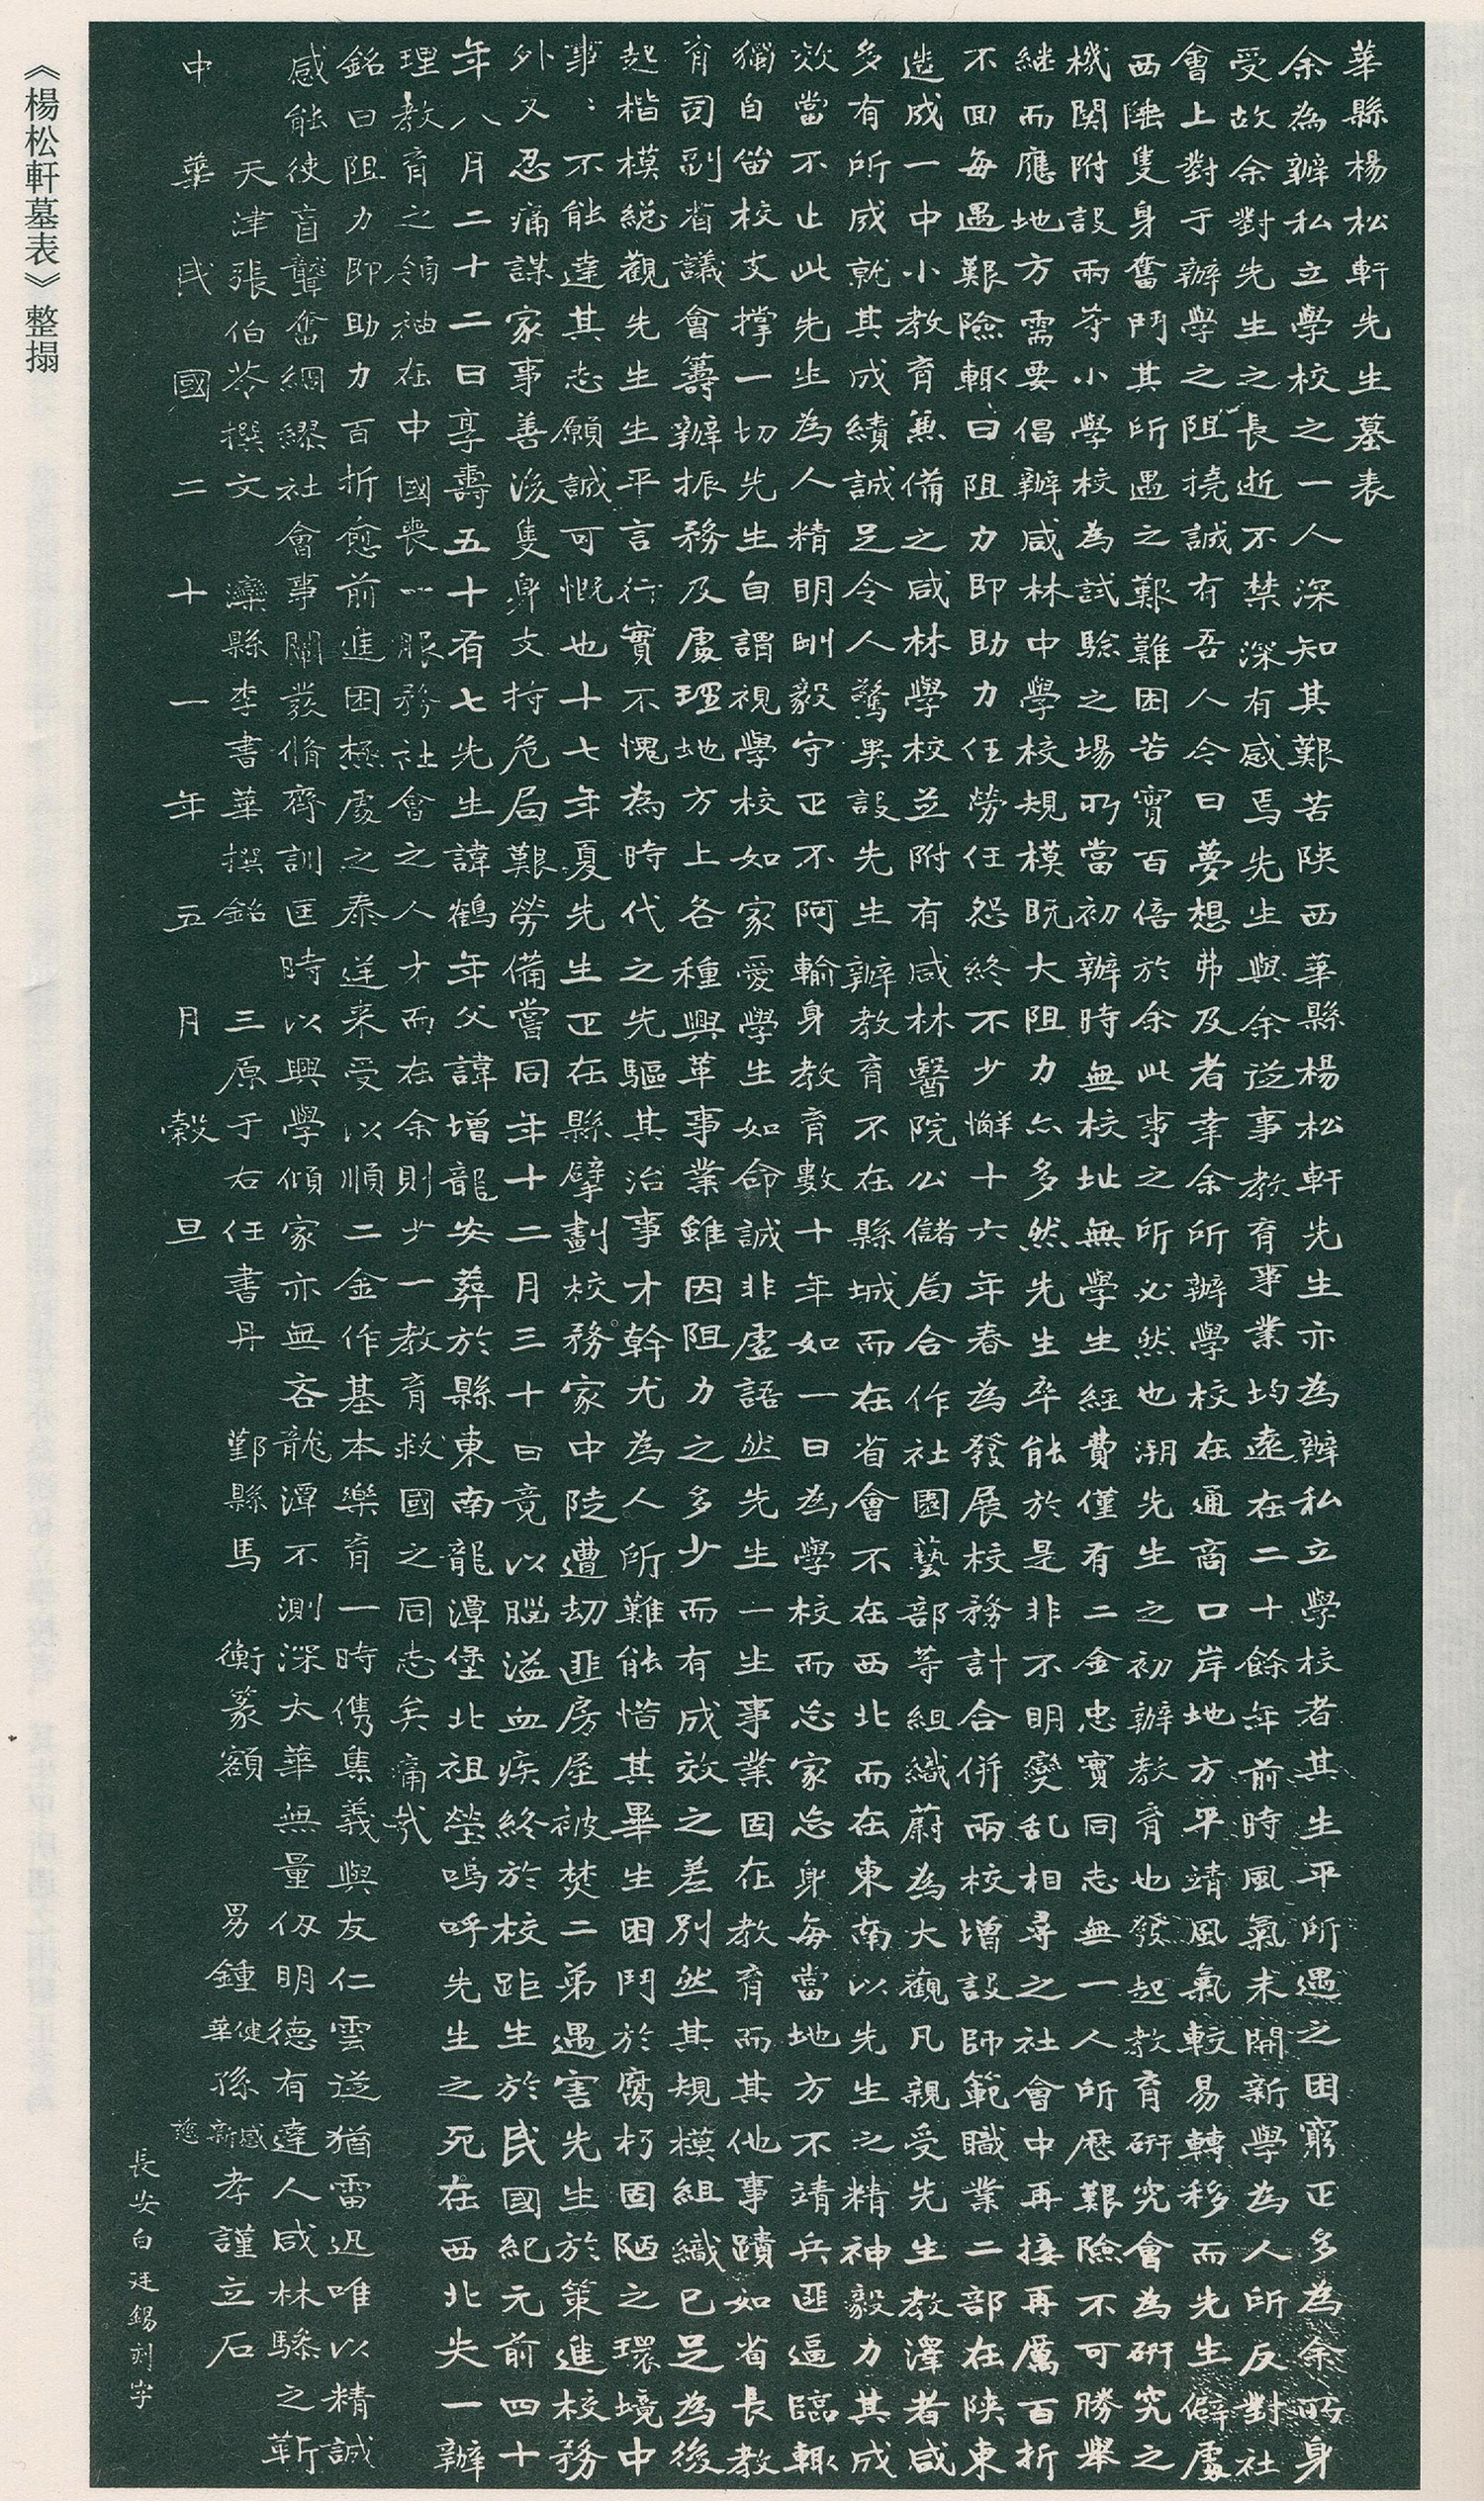 華縣楊松軒先生墓表
余為辦私立學校之一人深知其艱苦陝西華縣楊松軒先生亦為辦私立學校者其生平所遇之困窮正多為余所身
受故余對先生之長逝不禁深有感焉先生與余從事教育事業均遠在二十餘年前時風氣未開新學為人所反對社
會上對于辦學之阻撓誠有吾人今日夢想弗及者幸余所辦學校在通商口岸地方平靖風氣較易轉移而先生僻處
西陲隻身奮鬥其所遇之艱難困苦實百倍於余此事之所必然也溯先生之初辦教育也發起教育研究會為研究之
機關附設兩等小學校為試驗之場所當初辦時無校址無學生經費僅有二金忠實同志無一人所歷艱險不可勝舉
繼而應地方需要倡辦咸林中學校規模既大阻力亦多然先生卒能於是非不明變乱相尋之社會中再接再厲百折
不回每遇艱險輙曰阻力即助力任勞任怨終不少懈十六年春為發展校務計合併兩校增設師範職業二部在陝東
造成一中小教育兼備之咸林學校並附有咸林醫院公儲局合作社園藝部等組織蔚為大觀凡親受先生教澤者咸
多有所成就其成績誠足令人驚異設先生辦教育不在縣城而在省會不在西北而在東南以先生之精神毅力其成
效當不止此先生為人精明剛毅守正不阿輸身教育數十年如一日為學校而忘家忘身每當地方不靖兵匪逼臨輙
獨自留校支撐一切先生自謂視學校如家愛學生如命誠非虛語然先生一生事業固在教育而其他事蹟如省長教
育司副省議會籌辦振務及處理地方上各種興革事業雖因阻力之多少而有成效之差別然其規模組織已足為後
起楷模總觀先生生平言行實不愧為時代之先驅其治事才幹尤為人所難能惜其畢生困鬥於腐朽固陋之環境中
事﹕不能達其志願誠可慨也十七年夏先生正在縣擘劃校務家中陡遭劫匪房屋被焚二弟遇害先生於策進校務
外又忍痛謀家事善後隻身支持危局艱勞備嘗同年十二月三十日竟以腦溢血疾終於校距生於民國紀元前四十
年八月二十二日享壽五十有七先生諱鶴年父諱增龍安葬於縣東南龍潭堡北祖塋嗚呼先生之死在西北失一辦
理教育之領袖在中國喪一服務社會之人才而在余則少一教育救國之同志矣痛哉
銘曰阻力即助力百折愈前進困極處之泰逆來受以順二金作基本樂育一時儁集義與友仁雲從猶雷迅唯以精誠
感能使盲聾奮綢繆社會事闡發脩齊訓匡時以興學傾家亦無吝龍潭不測深太華無量仭明德有達人咸林驂之靳
天津張伯苓撰文　灤縣李書華撰銘　三原于右任書丹　鄞縣馬　衡篆額　男鍾華健華孫新感孝謹立石
中華民國二十一年五月穀旦
長安白廷錫刻字
《楊松軒墓表》整搨